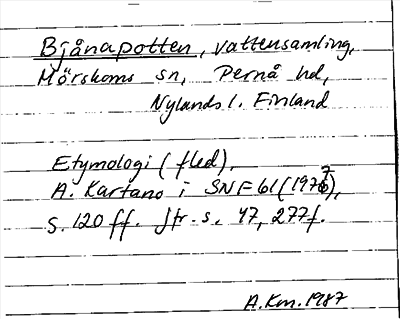 Bjånapotten, vattensamling,
Mörskoms sn, Pernå hd,
Nylands l. Finland
Etymologi (fled),
A. Kartano i SNF 61 (1977),
s. 120 ff. Jfr s. 47, 277f.
A.Km. 1987